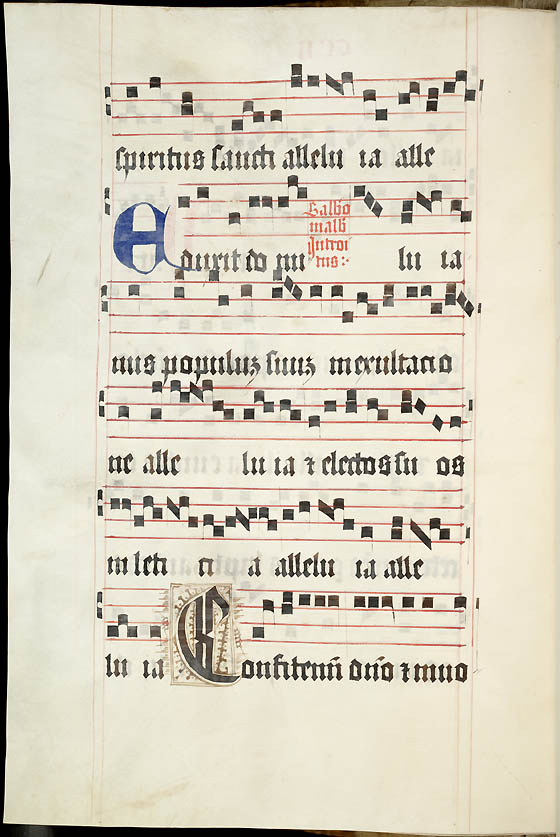 spiritus sancti allelu ia alle
Sabbo
in alb
Introi
tus:
Eduxit do mi lu ia
nus populuz suuz in exultacio
ne alle lu ia ⁊ electos su os
in leti ci a allelu ia alle
lu ia Confitemī dño ⁊ inuo